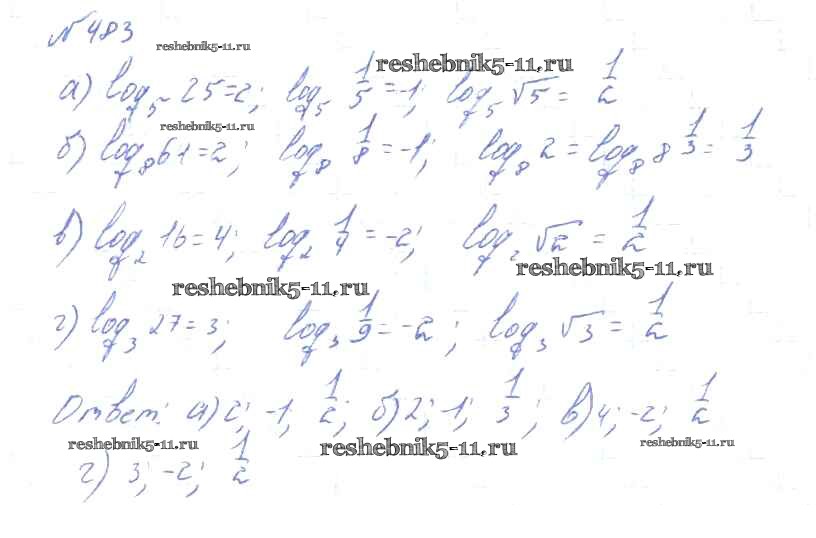 № 483
reshebnik5-11.ru
reshebnik5-11.ru
а) log₅ 25 = 2; log₅ 1/5 = -1; log₅ √5 = 1/2
reshebnik5-11.ru
б) log₈ 61 = 2; log₈ 1/8 = -1; log₈ 2 = log₈ 8^(1/3) = 1/3
в) log₂ 16 = 4; log₂ 1/4 = -2; log₂ √2 = 1/2
reshebnik5-11.ru
reshebnik5-11.ru
г) log₃ 27 = 3; log₃ 1/9 = -2; log₃ √3 = 1/2
Ответ: а) 2; -1; 1/2; б) 2; -1; 1/3; в) 4; -2; 1/2
reshebnik5-11.ru
reshebnik5-11.ru
reshebnik5-11.ru
г) 3; -2; 1/2